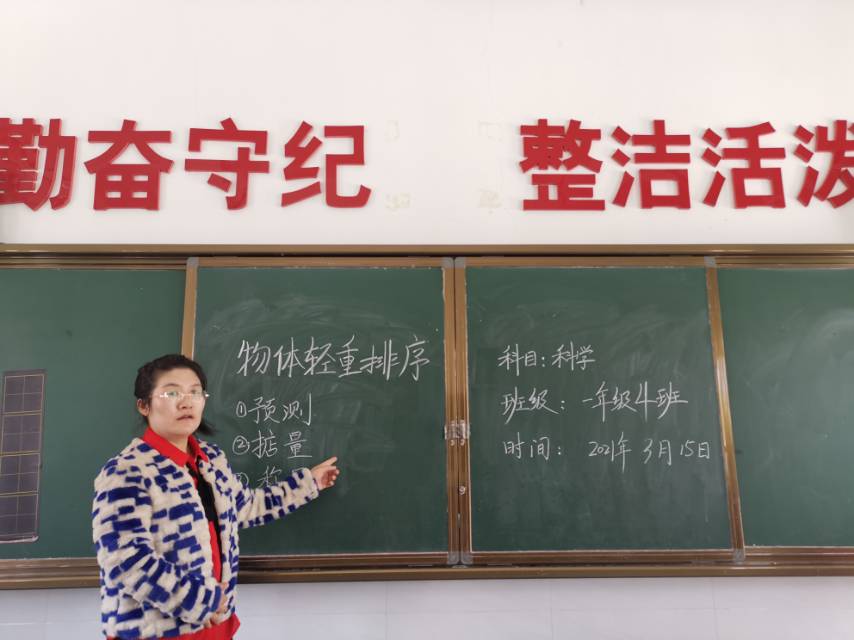 勤奋守纪 整洁活泼
物体轻重排序
①预测
②掂量
科目：科学
班级：一年级4班
时间：2021年3月15日